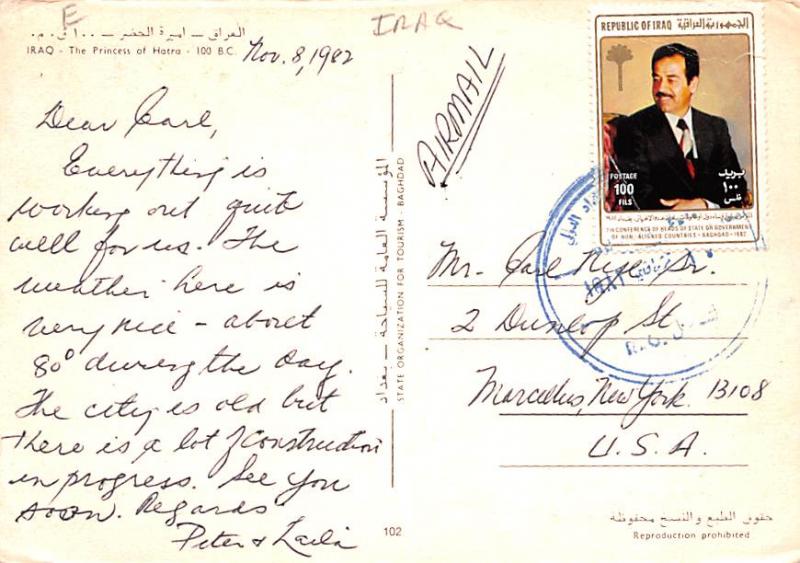 E
IRAQ
العراق — اميرة الحضر — ١٠٠ ق.م.
IRAQ - The Princess of Hatra - 100 B.C.
Nov. 8, 1982
Dear Carl,
Everything is
working out quite
well for us. The
weather here is
very nice - about
80° during the day.
The city is old but
there is a lot of construction
in progress. See you
soon. Regards
Peter &
102
المؤسسة العامة للسياحة - بغداد
STATE ORGANIZATION FOR TOURISM - BAGHDAD
AIRMAIL
REPUBLIC OF IRAQ الجمهورية العراقية
POSTAGE
100
FILS
بريد
١٠٠
فلس
7TH CONFERENCE OF HEADS OF STATE OR GOVERNMENT
OF NON-ALIGNED COUNTRIES - BAGHDAD - 1982
Mr. Carl Sr.
2 Dunlop St
Marcellus, New York 13108
U.S.A.
حقوق الطبع والنسخ محفوظة
Reproduction prohibited